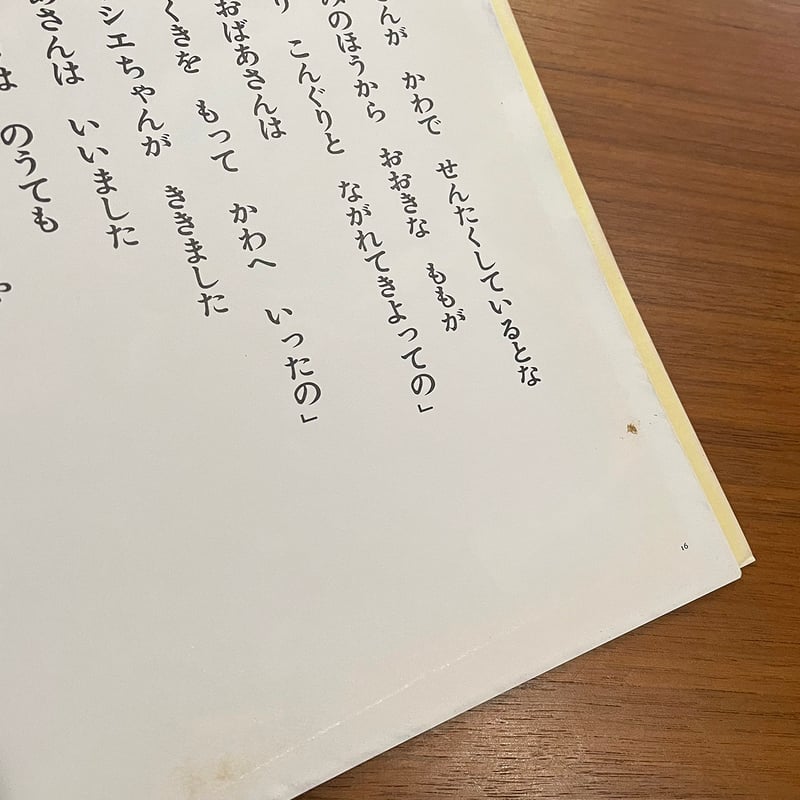 さんが かわで せんたくしているとな
のほうから おおきな ももが
こんぐりと ながれてきよっての」
おばあさんは
くきを もって かわへ いったの」
シエちゃんが ききました
あさんは いいました
は のうても
16